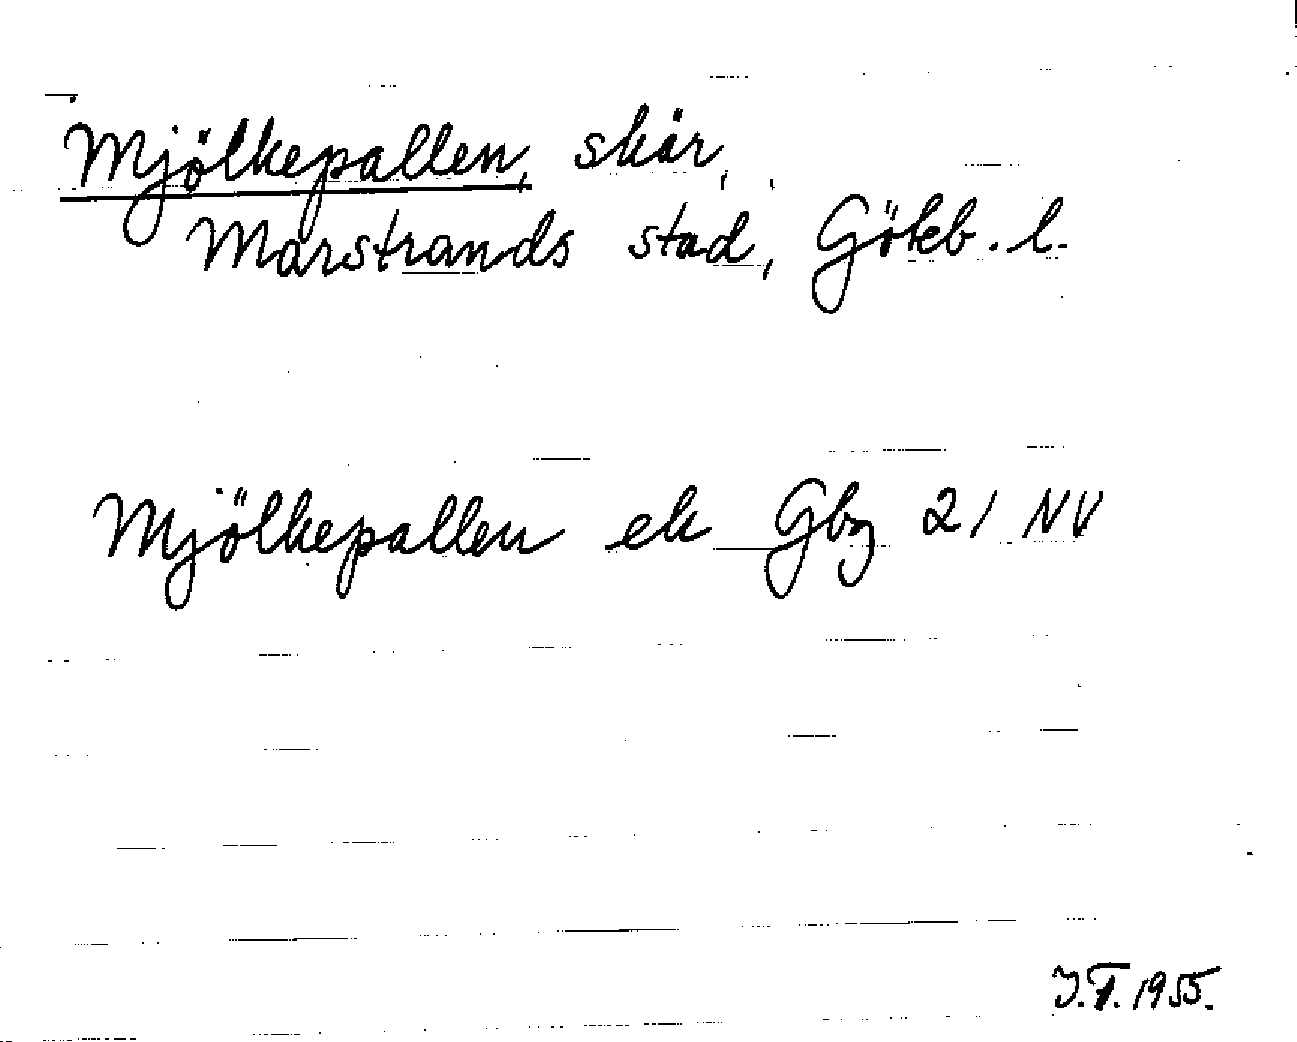 Mjölkepallen, skär,
Marstrands stad, Göteb. l.
Mjölkepallen ek Gbg 21 NV
J.F. 1955.